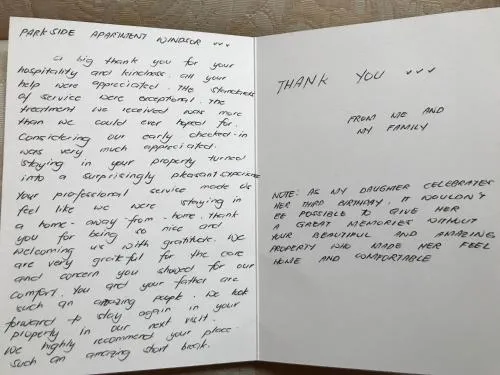 PARKSIDE APARTMENT WINDSOR ✓✓✓
a big thank you for your
hospitality and kindness. all your
help were appreciated. The standards
of service were exceptional. The
treatment we received was more
than we could ever hoped for.
Considering our early checked-in
was very much appreciated.
Staying in your property turned
into a surprisingly pleasant experience
Your professional service made us
feel like we were staying in
a home-away-from-home. Thank
you for being so nice and
welcoming us with gratitude. We
are very grateful for the care
and concern you showed for our
comfort. You and your father are
such an amazing people. We look
forward to stay again in your
property in our next visit.
We highly recommend your place.
Such an amazing short break.
THANK YOU ✓✓✓
FROM ME AND
MY FAMILY
NOTE: AS MY DAUGHTER CELEBRATES
HER THIRD BIRTHDAY. IT WOULDN'T
BE POSSIBLE TO GIVE HER
A GREAT MEMORIES WITHOUT
YOUR BEAUTIFUL AND AMAZING
PROPERTY WHO MADE HER FEEL
HOME AND COMFORTABLE